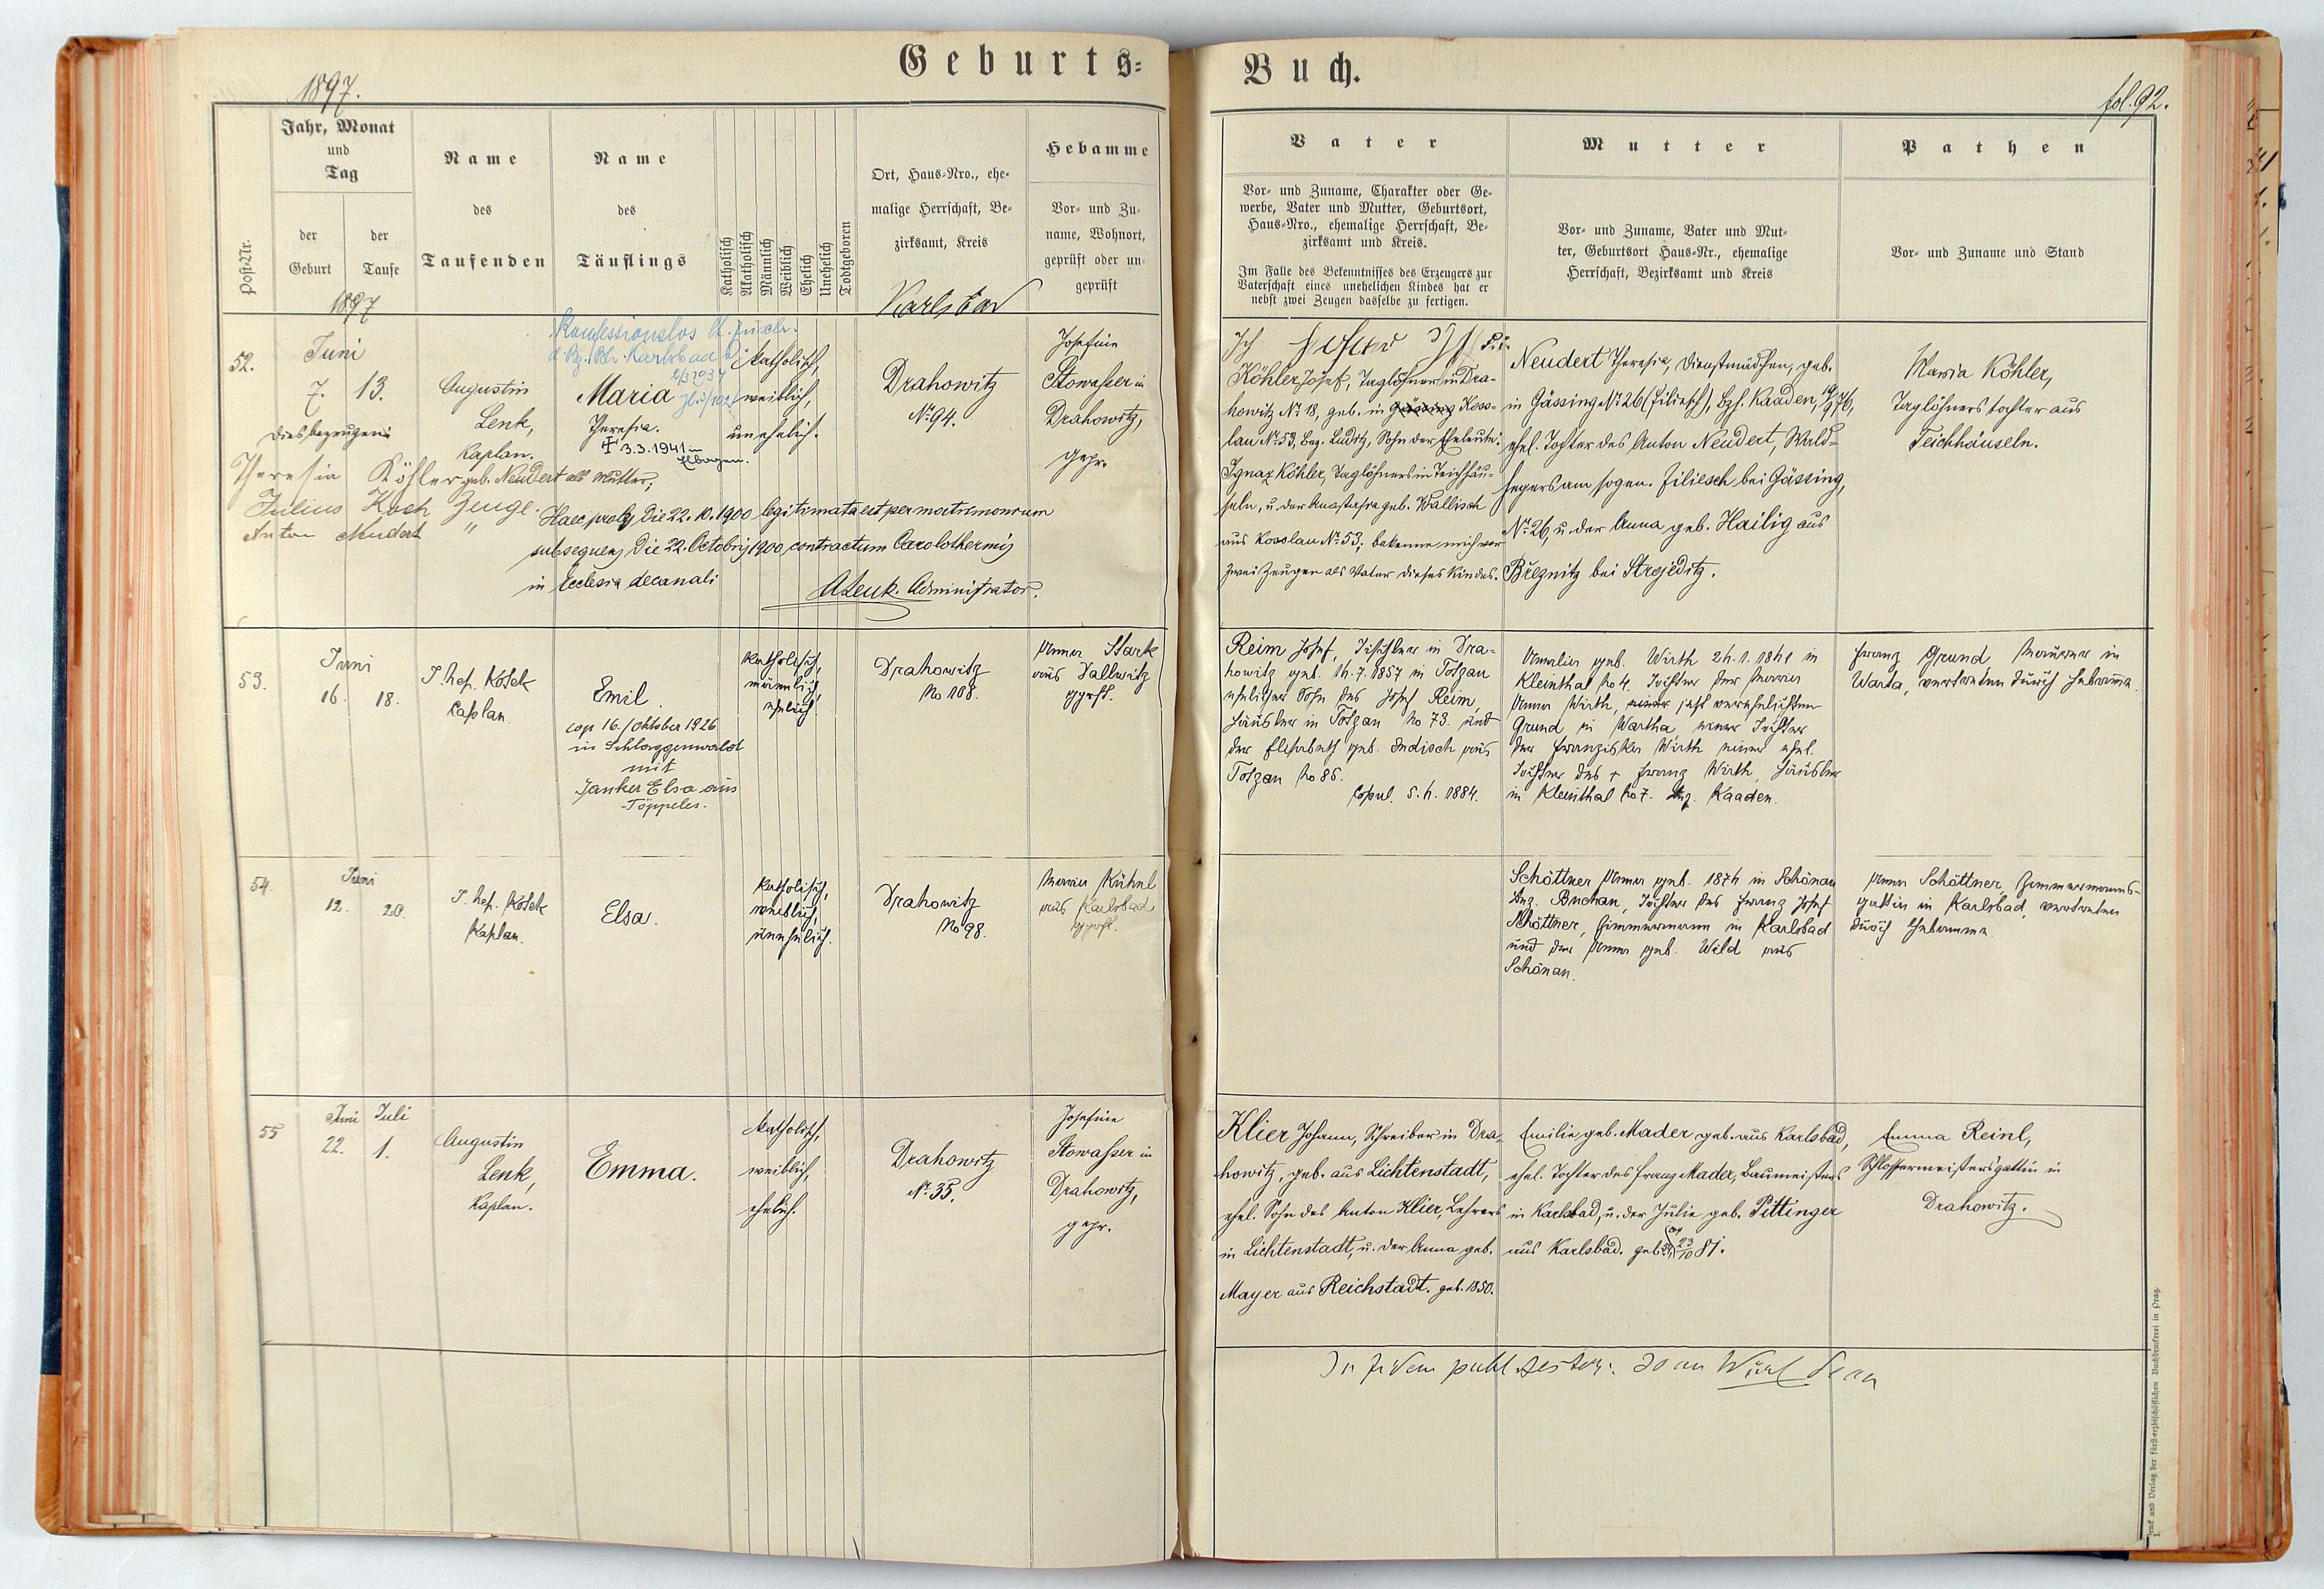 Geburts-
Buch.
1897.
fol. 92.
Post-Nr.
Jahr, Monat
und
Tag
der
Geburt
der
Taufe
1897
Name
des
Taufenden
Name
des
Täuflings
Katholisch
Akatholisch
Männlich
Weiblich
Ehelich
Unehelich
Todtgeboren
Ort, Haus-Nro., ehe-
malige Herrschaft, Be-
zirksamt, Kreis
Karlsbad
Hebamme
Vor- und Zu-
name, Wohnort,
geprüft oder un-
geprüft
Vater
Vor- und Zuname, Charakter oder Ge-
werbe, Vater und Mutter, Geburtsort,
Haus-Nro., ehemalige Herrschaft, Be-
zirksamt und Kreis.
Im Falle des Bekenntnisses des Erzeugers zur
Vaterschaft eines unehelichen Kindes hat er
nebst zwei Zeugen dasselbe zu fertigen.
Mutter
Vor- und Zuname, Vater und Mut-
ter, Geburtsort Haus-Nr., ehemalige
Herrschaft, Bezirksamt und Kreis
Pathen
Vor- und Zuname und Stand
52.
Juni
7. 13.
Augustin
Lenk,
Kaplan.
Konfessionslos
Karlsbad
Maria
Theresia.
† 3.3.1941 in
Elbogen.
katholisch,
weiblich,
unehelich.
Drahowitz
No 94.
Josefine
Stowasser in
Drahowitz,
gepr.
dies bezeugen:
Theresia Köhler geb. Neudert als Mutter,
Julius Koch Zeuge.
Anton Neudert "
Haec proles die 22.10.1900 legitimata est per matrimonium
subsequens die 22. Octobris 1900 contractum Carolothermis
in Ecclesia decanali
A Lenk. Administrator.
Ich
Köhler Josef, Taglöhner in Dra-
howitz No 18, geb. in Gässing Koss-
lau No 53, Bez. Luditz, Sohn der Eheleute:
Ignaz Köhler, Taglöhners in Teichhäu-
seln, u. der Anastasia geb. Wallisch
aus Kosslau No 53; bekenne mich vor
zwei Zeugen als Vater dieses Kindes.
Neudert Theresia, Dienstmädchen, geb.
in Gässing No 26 (Ziliesch), Bzh. Kaaden, 19/9 76,
ehel. Tochter des Anton Neudert, Wald-
hegers am sogen. Ziliesch bei Gässing,
No 26, u. der Anna geb. Hailig aus
Březnitz bei Strojeditz.
Maria Köhler,
Taglöhnerstochter aus
Teichhäuseln.
53.
Juni
16. 18.
J. Nep. Kosek
Kaplan.
Emil.
cop 16./Oktober 1926
in Schlaggenwald
mit
Janker Elsa aus
Töppeles.
katholisch,
männlich,
ehelich.
Drahowitz
No 108.
Anna Stark
aus Dallwitz
geprft.
Reim Josef, Tischler in Dra-
howitz geb. 14.7.1857 in Totzau
ehelicher Sohn des Josef Reim,
Häusler in Totzau No 73. und
der Elisabeth geb. Endisch aus
Totzau No 86.
Copul. 5.4.1884.
Amalia geb. Wirth 24.1.1861 in
Kleinthal No 4. Tochter der Maria
Anna Wirth, jetzt verehelichten
Grund in Wartha, einer Tochter
der Franziska Wirth einer ehel.
Tochter des † Franz Wirth, Häusler
in Kleinthal No 7. Bez. Kaaden.
Franz Grund, Maurer in
Warta, vertreten durch Hebamme.
54.
Juni
12. 20.
J. Nep. Kosek
Kaplan.
Elsa.
katholisch,
weiblich,
unehelich.
Drahowitz
No 98.
Maria Kühnl
aus Karlsbad
geprft.
Schöttner Anna geb. 1874 in Schönau
Bez. Buchau, Tochter des Franz Josef
Schöttner, Zimmermann in Karlsbad
und der Anna geb. Wild aus
Schönau.
Anna Schöttner, Zimmermanns-
gattin in Karlsbad, vertreten
durch Hebamme.
55
Juni Juli
22. 1.
Augustin
Lenk,
Kaplan.
Emma.
katholisch,
weiblich,
ehelich.
Drahowitz
No 35.
Josefine
Stowasser in
Drahowitz,
gepr.
Klier Johann, Schreiber in Dra-
howitz, geb. aus Lichtenstadt,
ehel. Sohn des Anton Klier, Lehrers
in Lichtenstadt, u. der Anna geb.
Mayer aus Reichstadt. geb. 1850.
Emilie, geb. Mader geb. aus Karlsbad,
ehel. Tochter des Franz Mader, Baumeisters
in Karlsbad, u. der Julie geb. Pittinger
aus Karlsbad. geb. 23/10 81.
Emma Reinl,
Schlossermeistersgattin in
Drahowitz.
In fidem publ
Druck und Verlag der fürsterzbischöflichen Buchdruckerei in Prag.